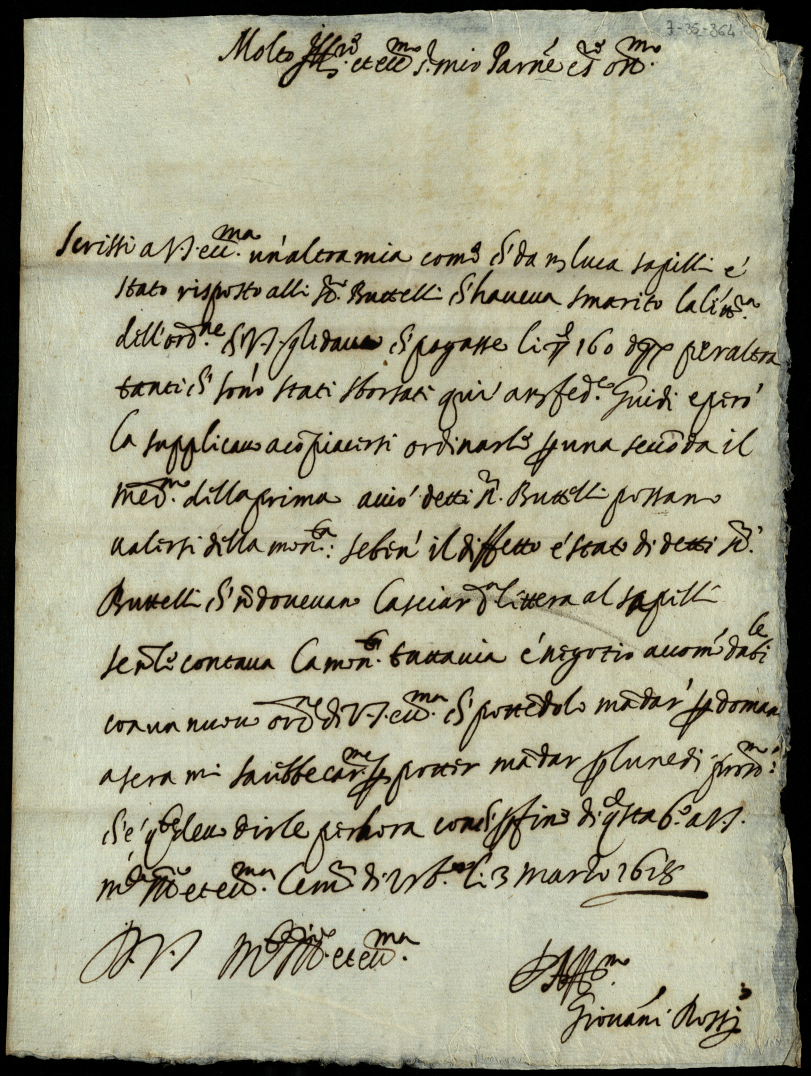 7-35-364
Molto Ill.re et ecc.mo S.r mio Parne et oss.mo
Scrissi a V.S. ecc.ma un'altra mia come ch'da m luca sapilli é
stato risposto alli SS.ri Buttelli ch'haueua smarito la littra
dell'ord.ne ch' V.S. gli daua ch' pagasse li 160 per altra
tanti ch' sono stati sborsati qui a m fed.co Guidi e peró
la supplicauo a cōpiacersi ordinarle p una secōda il
med.mo della prima acció detti SS.ri Buttelli possano
ualersi della mon.ta: seben' il diffetto é stato di detti SS.ri
Buttelli ch' nō doueuano lasciar la littera al sapilli
se nō le contaua la mon.ta tuttauia é negotio accom̄dabile
con un nuouo ord.ne di V.S. ecc.ma ch' pottēdolo mādar' p domane
a sera mi sarebbe car.mo p potter mādar p lunedi pross.mo:
ch' é q.to deuo dirle per hora con ch' p fine di q.sta b.o a V.S.
m.to Ill.re et ecc.ma le m di Urb.o li 3 Marzo 1618
D. V.S. M.to Ill.re et ecc.ma
S. Aff.mo
Giouāni Rossi